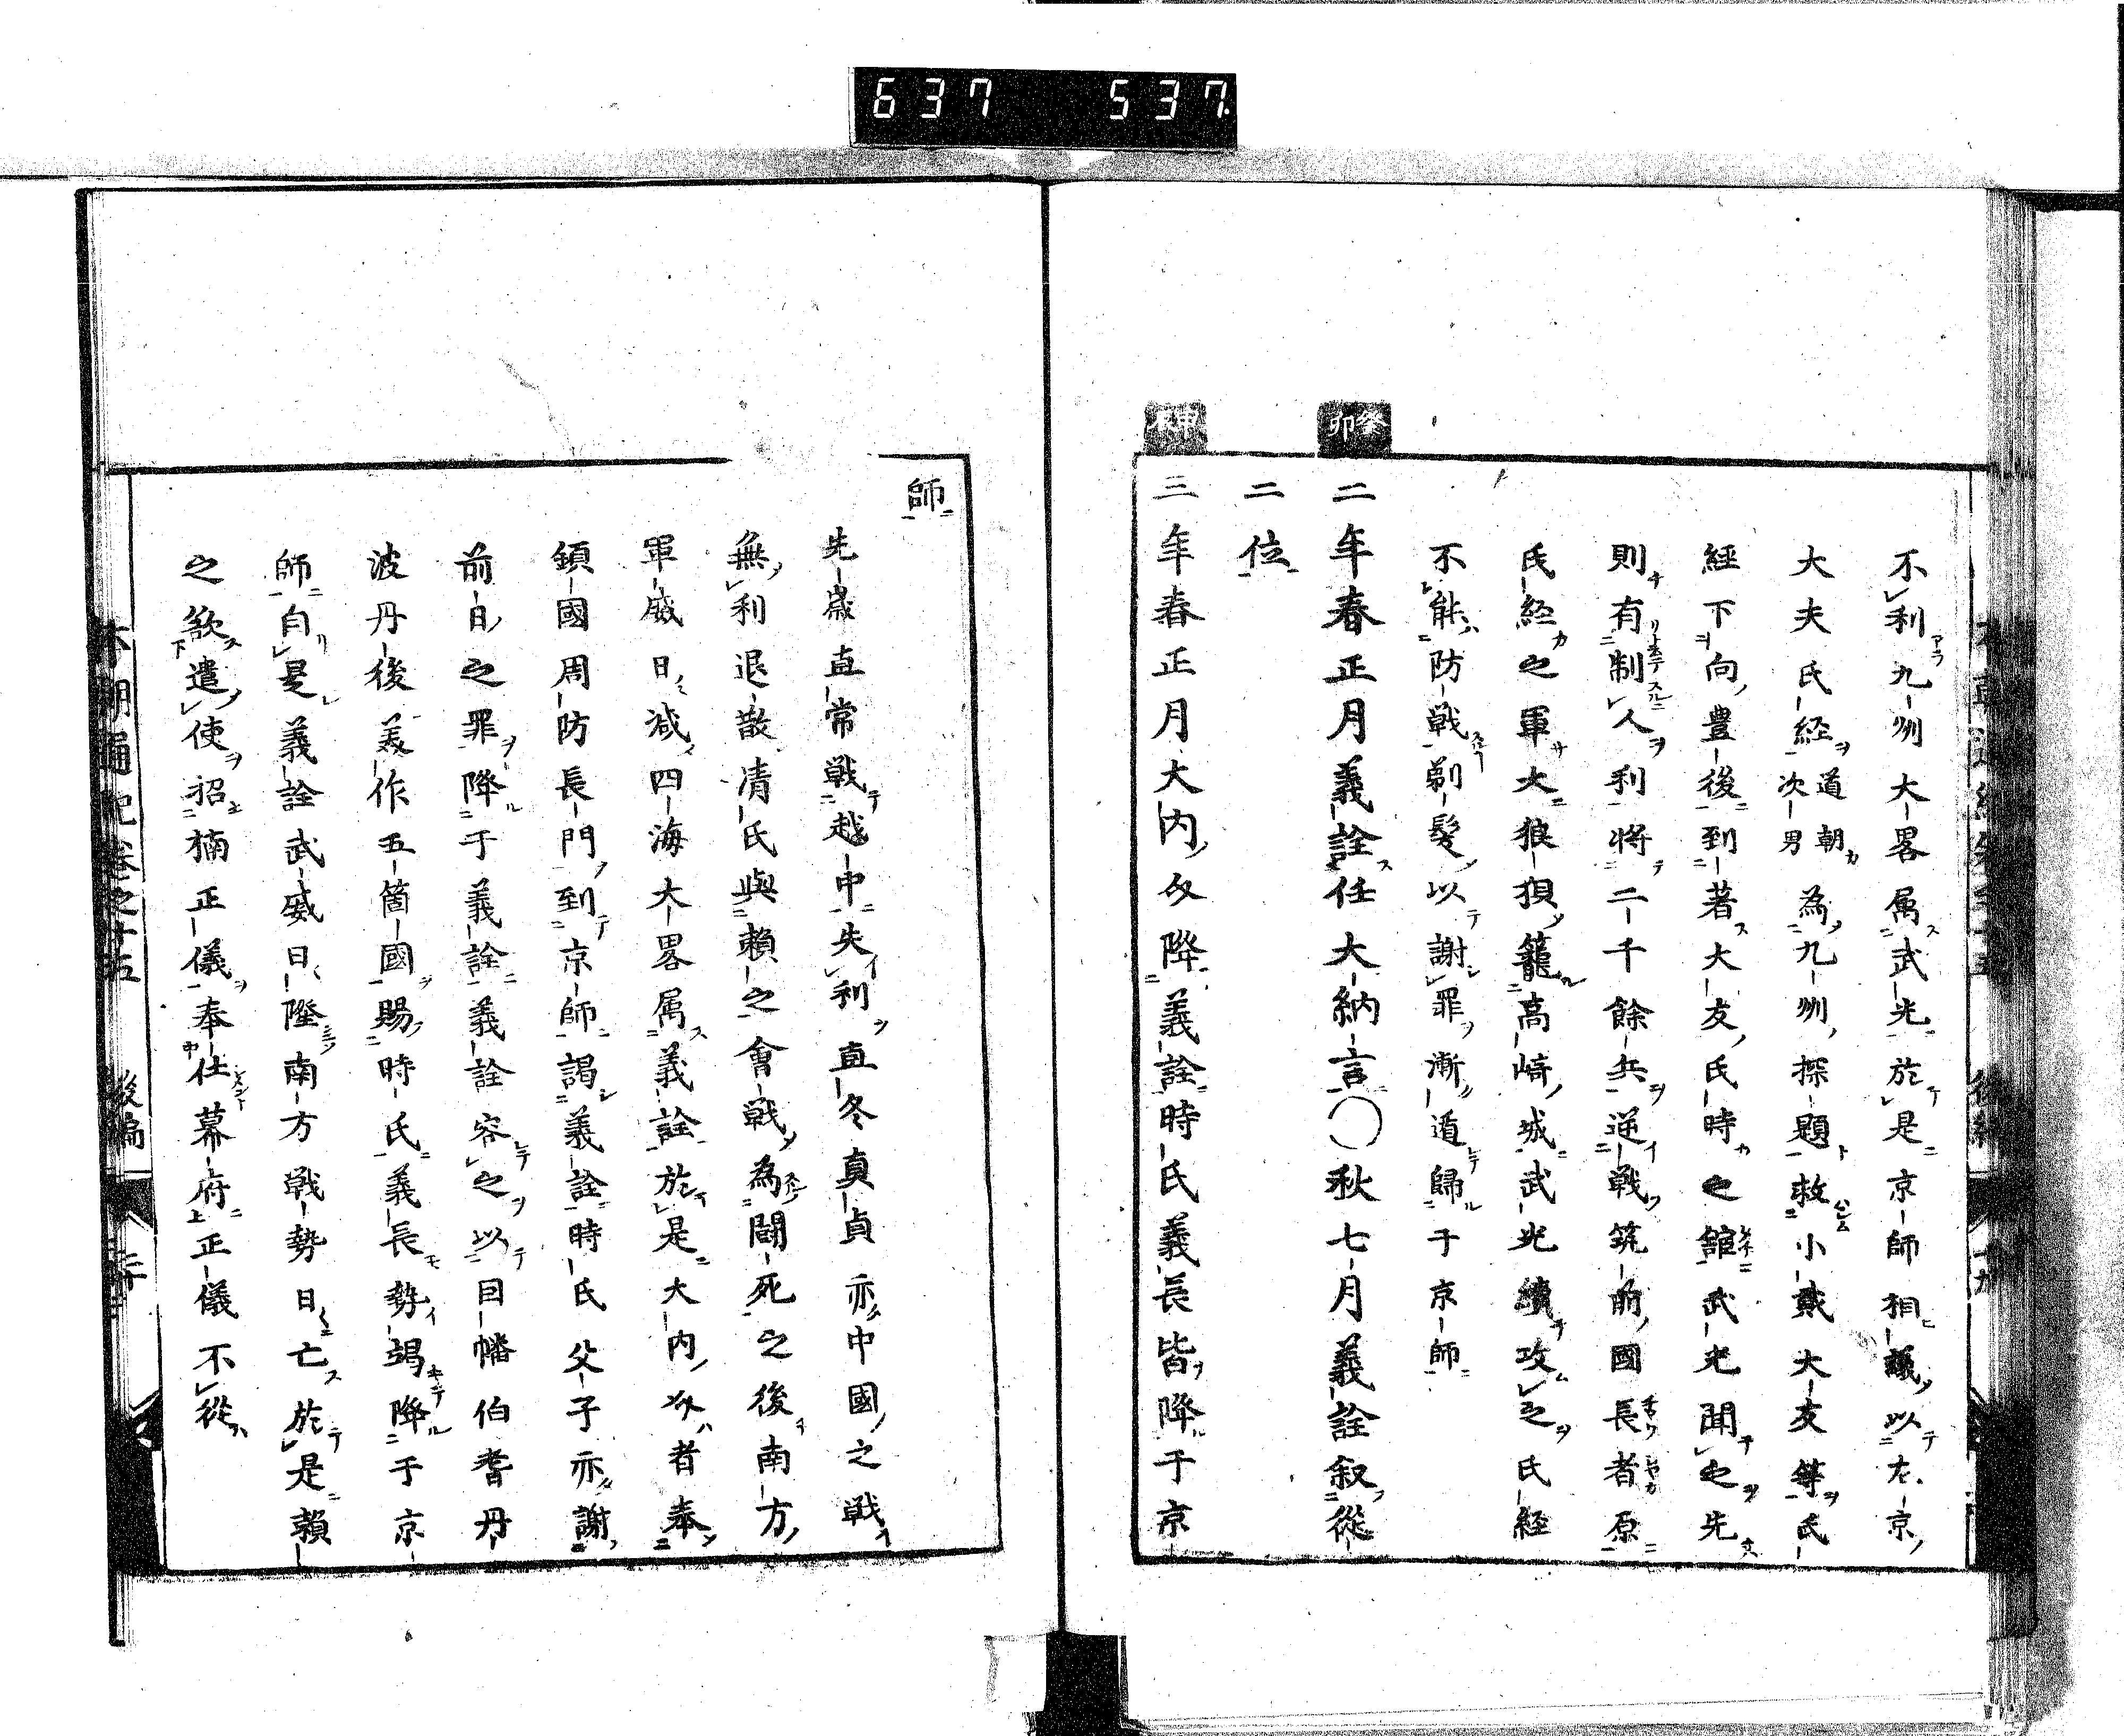 637 537
不利九州大畧属武光於是京師相議以左京
大夫氏経道朝次男為九州探題救小貳大友等氏
經下向豊後到著大友氏時之舘武光聞之先
則有制人利将二千餘兵逆戦筑前國長者原
氏経之軍大狼狽籠高崎城武光續攻之氏経
不能防戦剃髮以謝罪漸遁歸于京師
癸卯
二年春正月義詮任大納言〇秋七月義詮叙從
二位
甲辰
三年春正月大内介降義詮時氏義長皆降于京
師
先歳直常戦越中失利直冬真貞亦中國之戦
無利退散清氏與賴之會戦為闘死之後南方
軍威日減四海大畧属義詮於是大内介者奉
鎮國周防長門到京師謁義詮時氏父子亦謝
前日之罪降于義詮義詮容之以因幡伯耆丹
波丹後美作五箇國賜時氏義長勢竭降于京
師自是義詮武威日隆南方戦勢日亡於是賴
之欲遣使招楠正儀奉仕幕府正儀不從
本朝通紀巻之十五 後編 二十